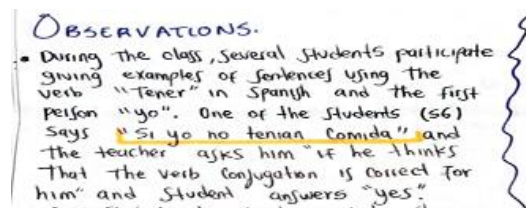 OBSERVATIONS.
• During the class, several students participate
giving examples of sentences using the
verb "Tener" in Spanish and the first
person "yo". One of the students (S6)
says "Si yo no tenian comida" and
the teacher asks him "if he thinks
that the verb conjugation is correct for
him" and student answers "yes".